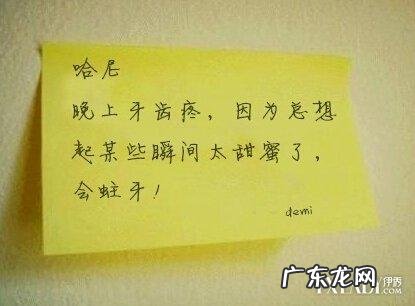 哈尼
晚上牙齿疼，因为总想
起某些瞬间太甜蜜了，
会蛀牙！
demi
伊秀
广东龙网